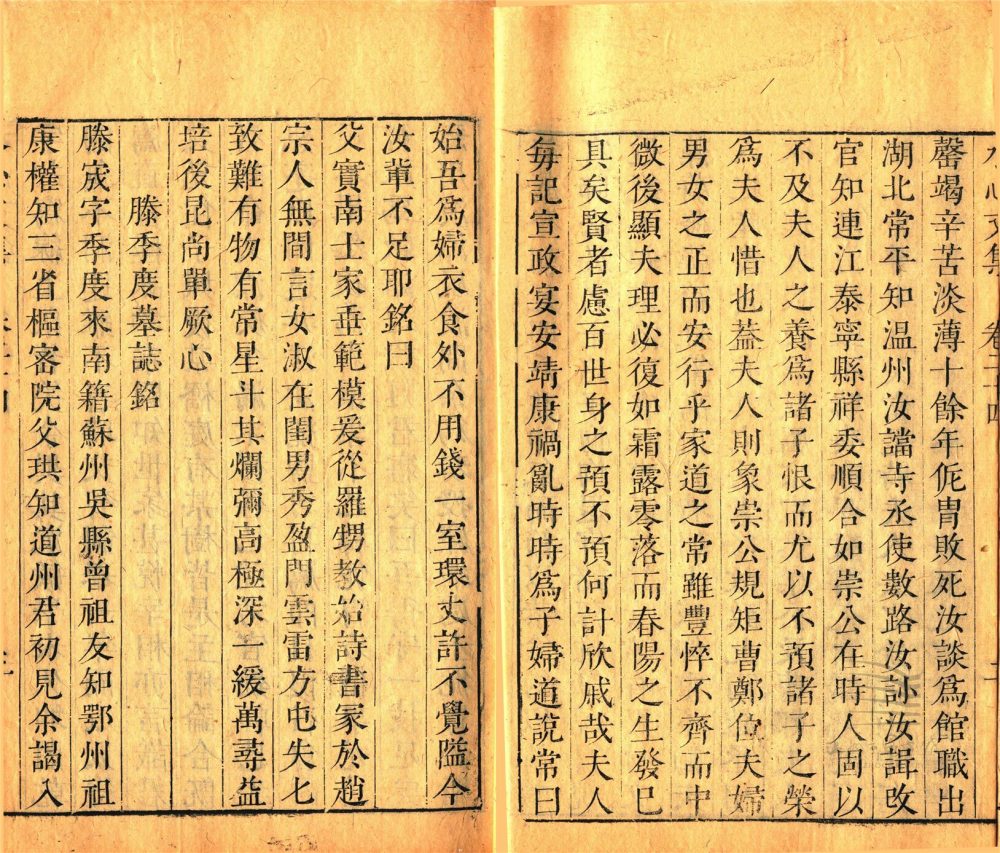 水心文集 卷二十四
罄竭辛苦淡薄十餘年侂胄敗死汝談爲館職出
湖北常平知温州汝讜寺丞使數路汝訃汝諿改
官知連江泰寧縣祥委順合如崇公在時人固以
不及夫人之養爲諸子恨而尤以不預諸子之榮
爲夫人惜也葢夫人則象崇公規矩曹鄭位夫婦
男女之正而安行乎家道之常雖豐悴不齊而中
微後顯夫理必復如霜露零落而春陽之生發已
具矣賢者慮百世身之預不預何計欣戚哉夫人
每記宣政宴安靖康禍亂時時爲子婦道說常曰
始吾爲婦衣食外不用錢一室環丈許不覺隘今
汝軰不足耶銘曰
父實南士家垂範模爰從羅甥教始詩書冡於趙
宗人無間言女淑在閨男秀盈門雲雷方屯失匕
致難有物有常星斗其爛彌高極深一緩萬尋益
培後昆尚單厥心
滕季度墓誌銘
滕宬字季度來南籍蘇州吳縣曾祖友知鄂州祖
康權知三省樞宻院父珙知道州君初見余謁入